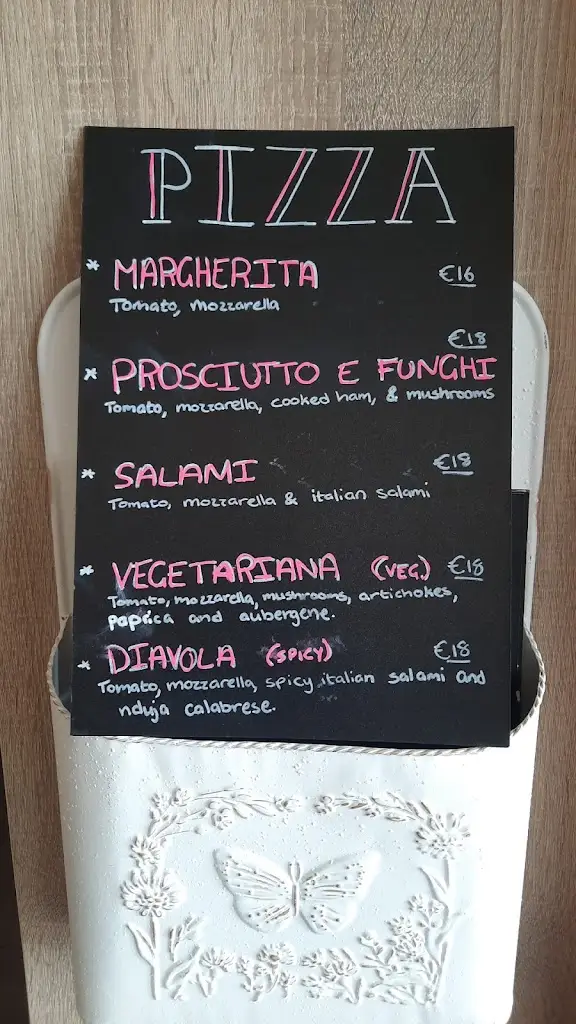 PIZZA
* MARGHERITA €16
Tomato, mozzarella
€18
* PROSCIUTTO E FUNGHI
Tomato, mozzarella, cooked ham, & mushrooms
* SALAMI €18
Tomato, mozzarella & italian salami
* VEGETARIANA (VEG.) €18
Tomato, mozzarella, mushrooms, artichokes,
paprica and aubergene.
* DIAVOLA (SPICY) €18
Tomato, mozzarella, spicy italian salami and
nduja calabrese.